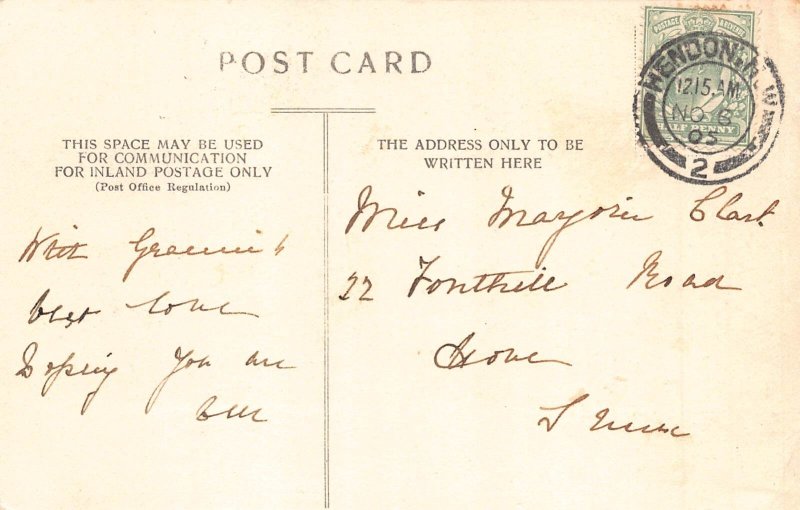 POST CARD
THIS SPACE MAY BE USED
FOR COMMUNICATION
FOR INLAND POSTAGE ONLY
(Post Office Regulation)
THE ADDRESS ONLY TO BE
WRITTEN HERE
POSTAGE REVENUE
HENDON.N.W
12.15.AM
NO 6
2
With Grannie's
best love
Hoping you are
well
Miss Marjorie Clark
22 Fonthill Road
Hove
S